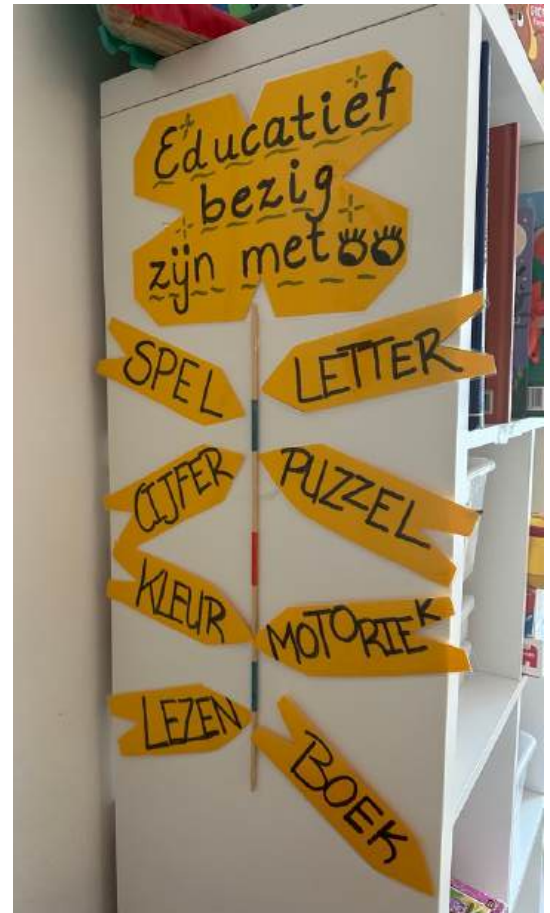 Educatief
bezig
zijn met
SPEL
LETTER
CIJFER
PUZZEL
KLEUR
MOTORIEK
LEZEN
BOEK